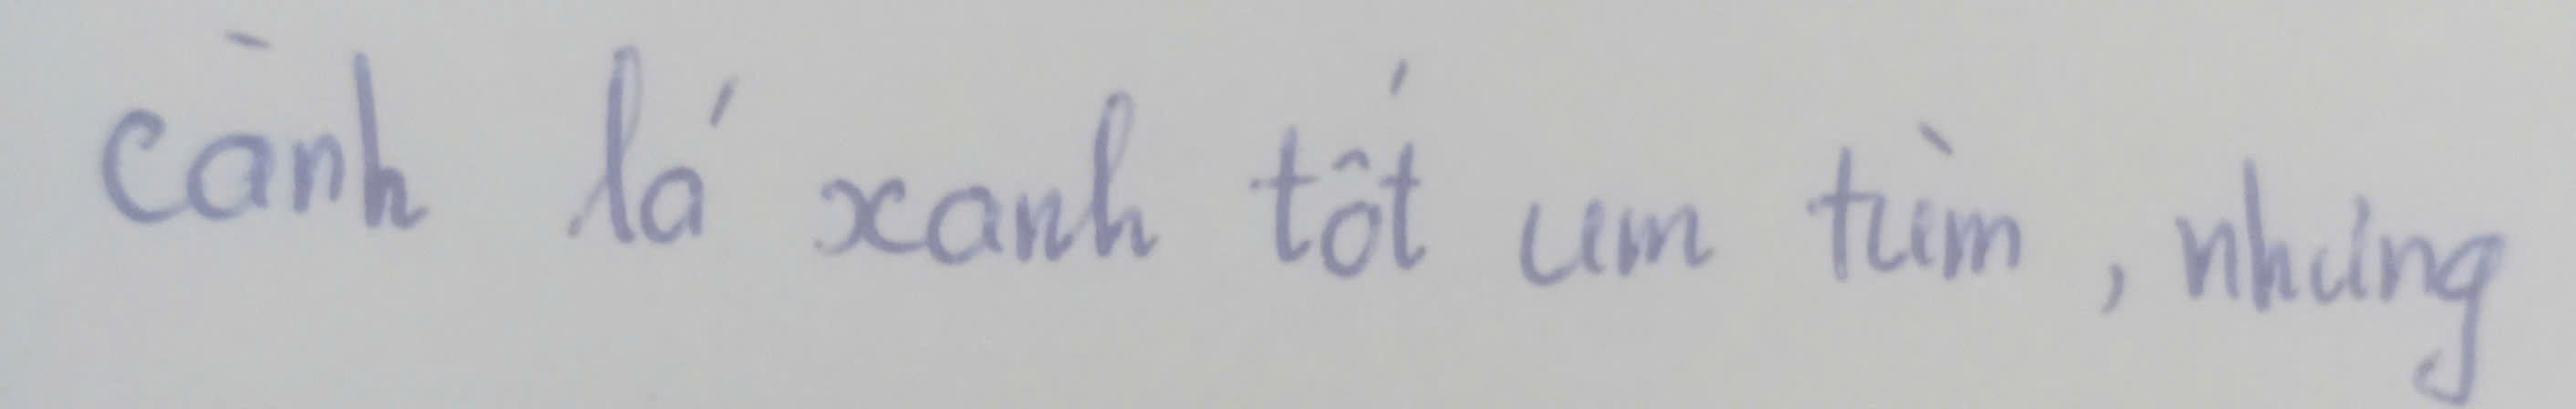 cành lá xanh tốt um tùm, nhưng